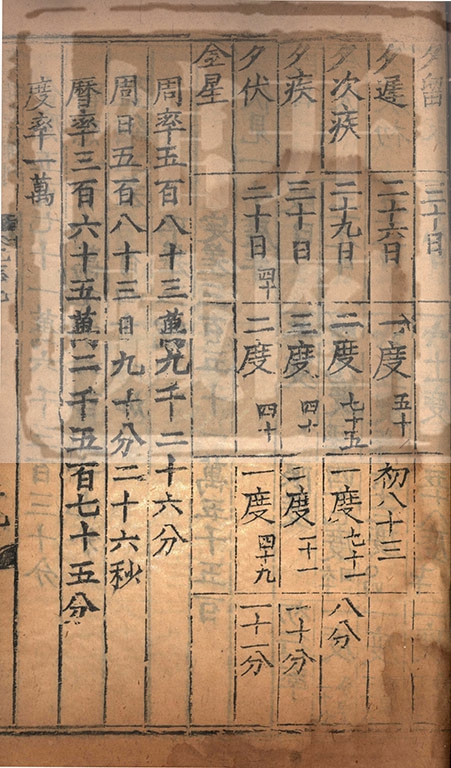 夕留 日
夕遲 二十六日 一度 五十 初八十三
夕次疾 二十九日 二度 七十五 一度 七十一 八分
夕疾 三十日 三度 四十 二度 一十分
夕伏 二十日 四十 二度 四十 一度 四十九 一十一分
金星
周率五百八十三萬九千二十六分
周日五百八十三日九十分二十六秒
曆率三百六十五萬二千五百七十五分
度率一萬